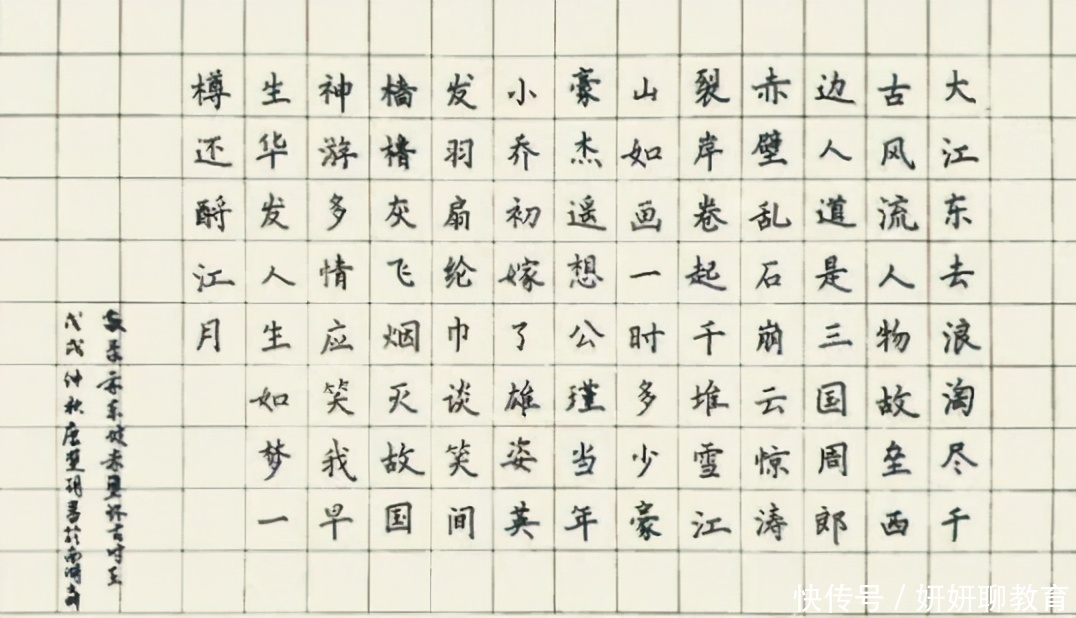 大江东去浪淘尽千
古风流人物故垒西
边人道是三国周郎
赤壁乱石崩云惊涛
裂岸卷起千堆雪江
山如画一时多少豪
豪杰遥想公瑾当年
小乔初嫁了雄姿英
发羽扇纶巾谈笑间
樯橹灰飞烟灭故国
神游多情应笑我早
生华发人生如梦一
樽还酹江月
坡赤壁怀古
戊戌仲秋 书於南湖
快传号 / 妍妍聊教育